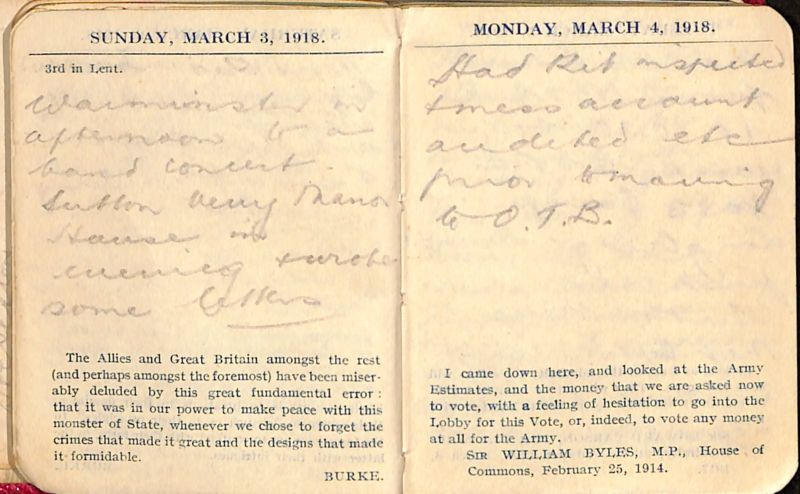 SUNDAY, MARCH 3, 1918.
3rd in Lent.
Warminster in
afternoon to a
band concert.
Sutton Veny Manor
House in
evening & wrote
some letters
The Allies and Great Britain amongst the rest
(and perhaps amongst the foremost) have been miser-
ably deluded by this great fundamental error:
that it was in our power to make peace with this
monster of State, whenever we chose to forget the
crimes that made it great and the designs that made
it formidable.
BURKE.
MONDAY, MARCH 4, 1918.
Had Kit inspected
& mess account
audited etc
prior to moving
to O.T.B.
I came down here, and looked at the Army
Estimates, and the money that we are asked now
to vote, with a feeling of hesitation to go into the
Lobby for this Vote, or, indeed, to vote any money
at all for the Army.
SIR WILLIAM BYLES, M.P., House of
Commons, February 25, 1914.